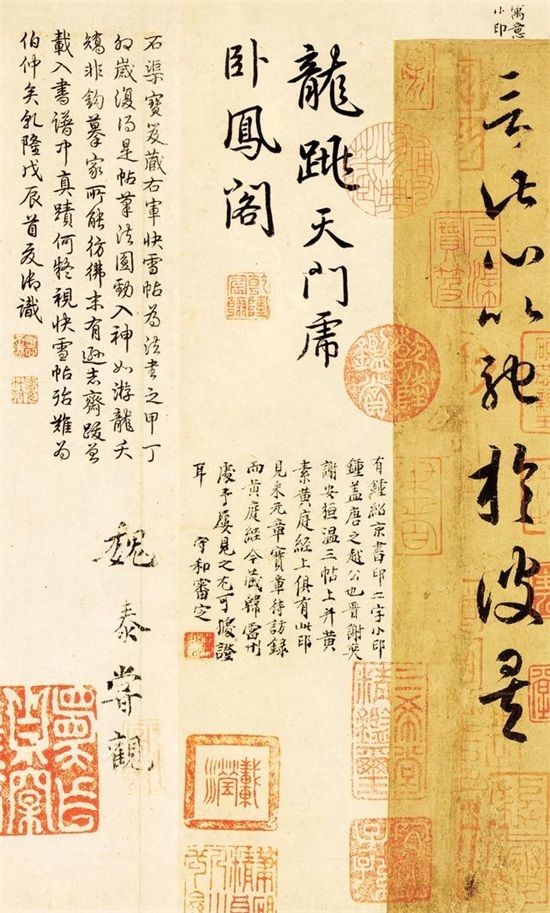 寓意
小印
言此心以馳於彼矣
龍跳天門虎
臥鳳閣
有鍾紹京書印二字小印
鍾蓋唐之越公也晉謝奕
謝安桓温三帖上并黃
素黃庭經上俱有此印
見米元章寶章待訪錄
而黃庭經今藏韓
處予屢見之尤可據證
耳 守和審定
石渠寶笈藏右軍快雪帖為法書之甲丁
卯歲復得是帖筆法圓勁入神如游龍夭
矯非鉤摹家所能彷彿末有遜志齋跋並
載入書譜中真蹟何疑視快雪帖殆難為
伯仲矣乾隆戊辰首夏御識
魏泰嘗觀
乾隆宸翰
乾隆鑑賞
石渠寶笈
三希堂精鑑璽